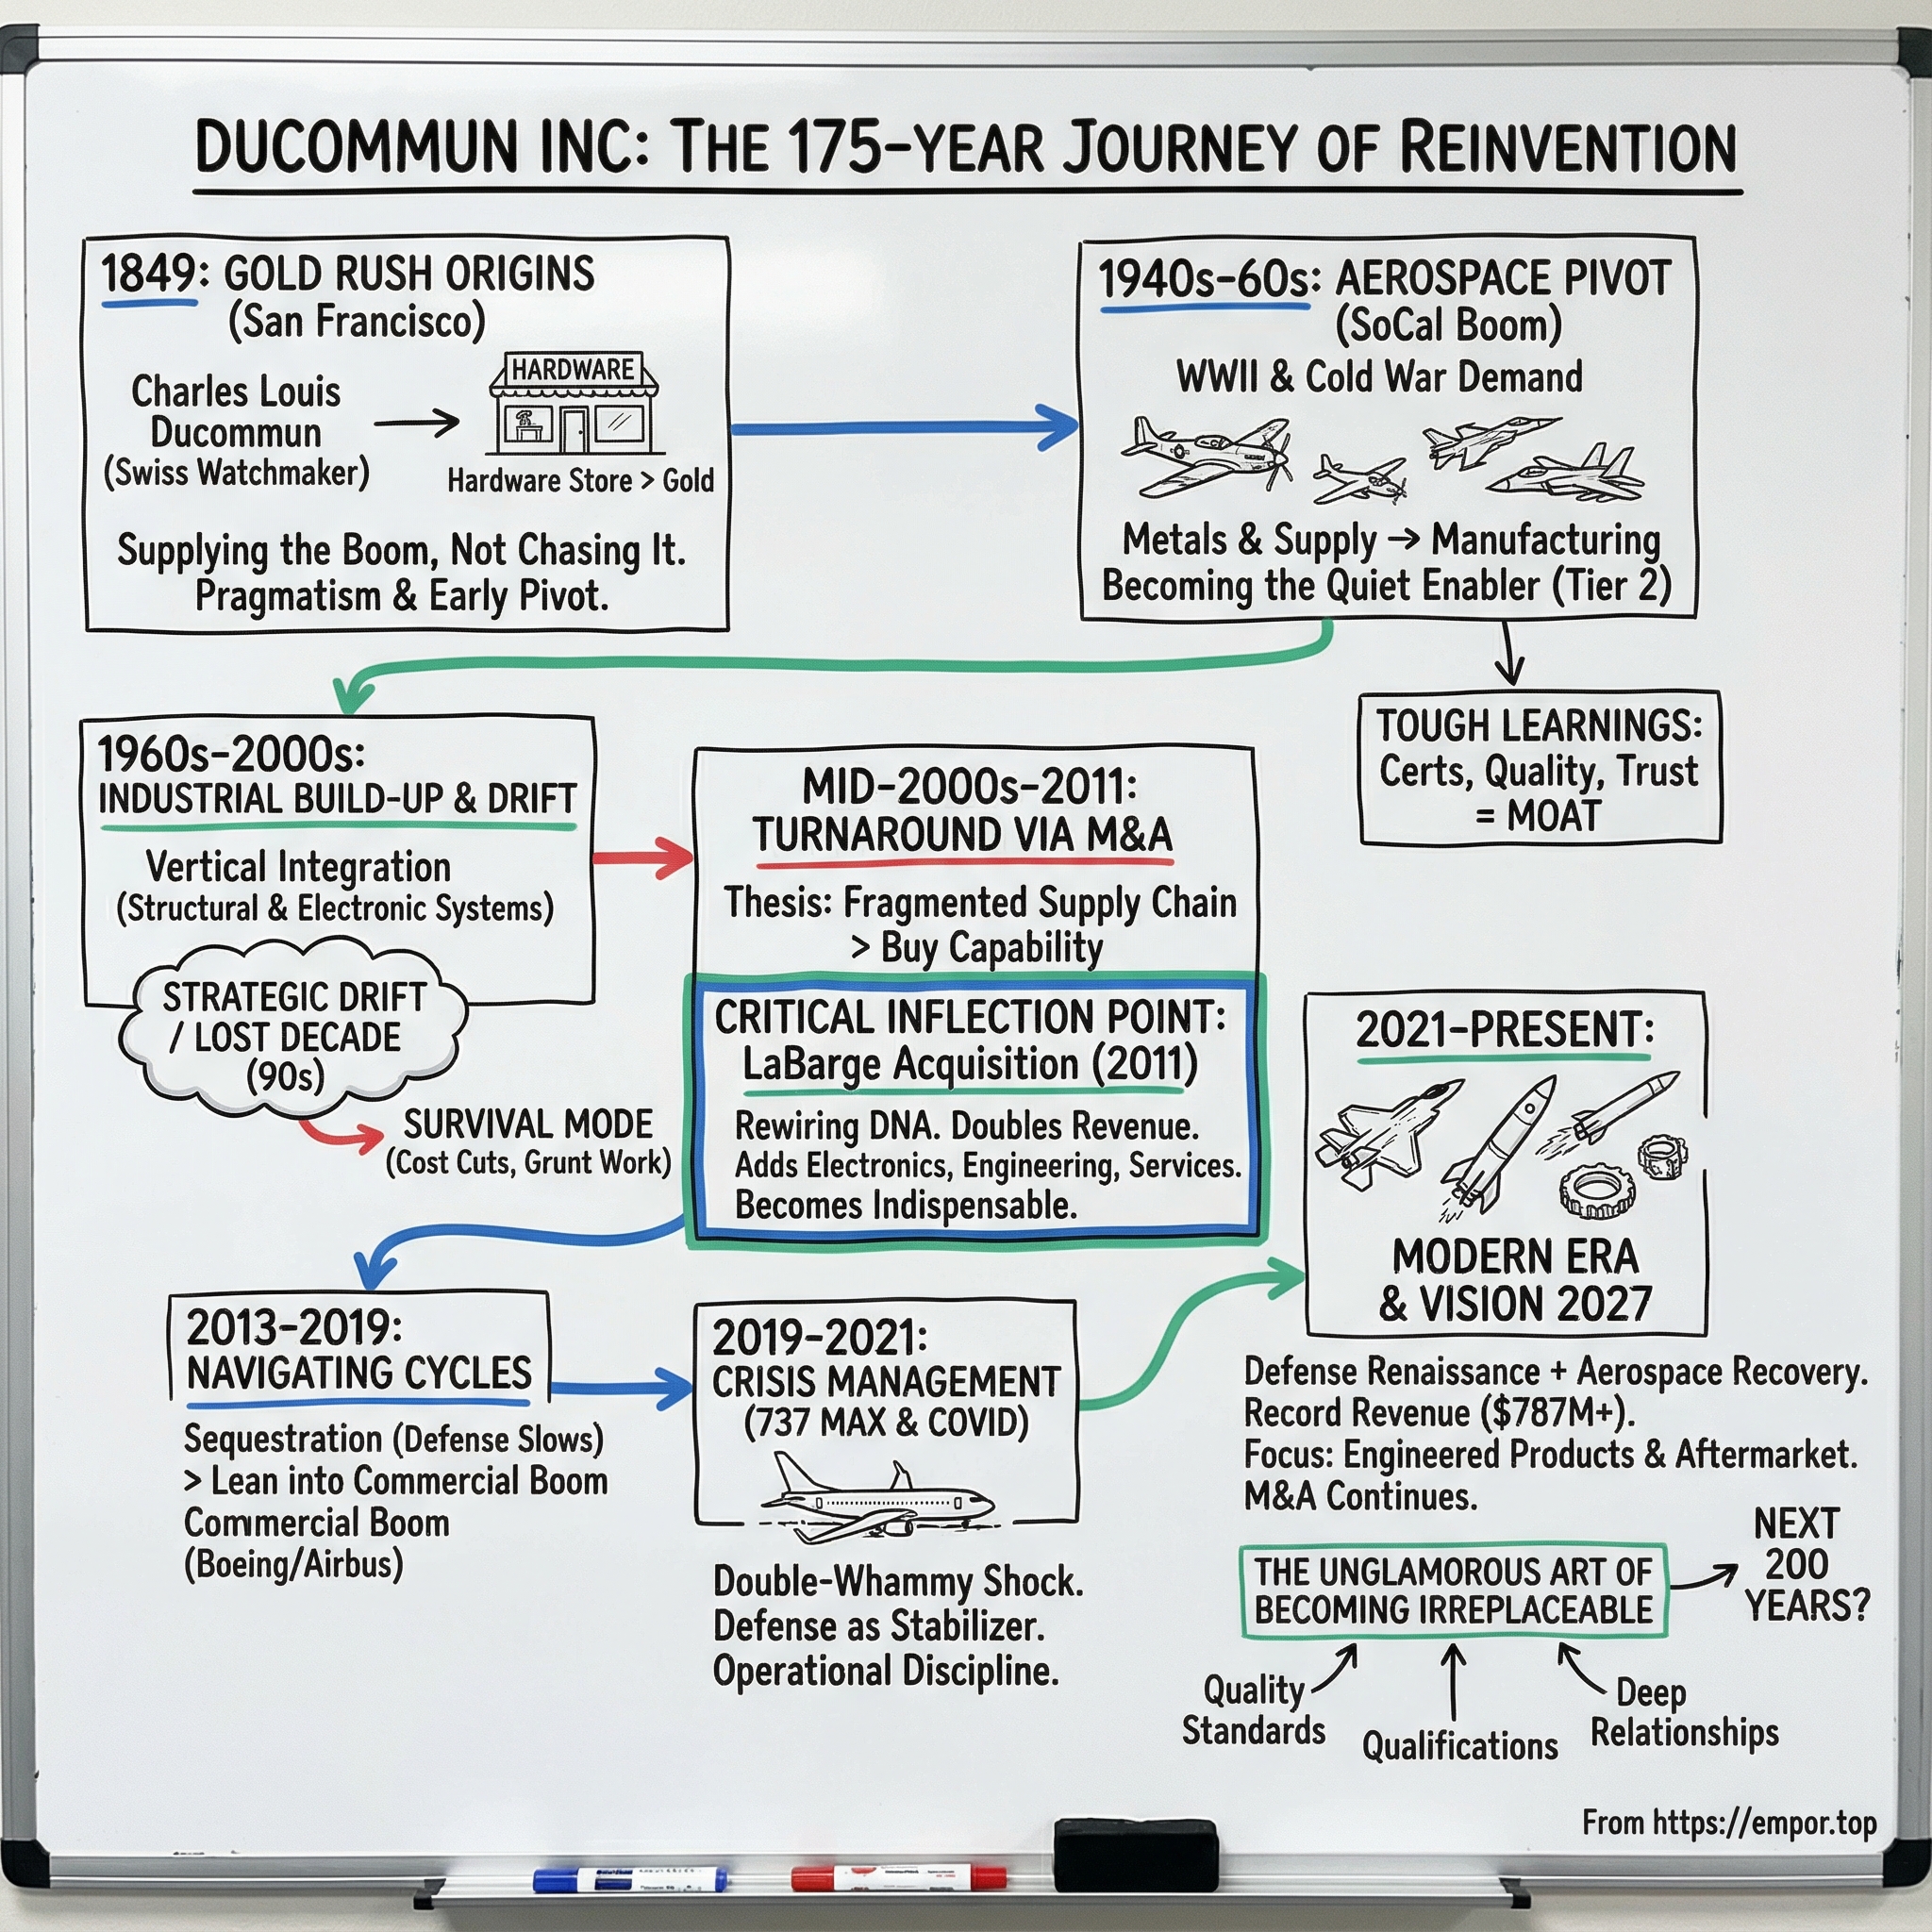 DUCOMMUN INC: THE 175-YEAR JOURNEY OF REINVENTION
1849: GOLD RUSH ORIGINS
(San Francisco)
Charles Louis
Ducommun
(Swiss Watchmaker)
HARDWARE
Hardware Store > Gold
Supplying the Boom, Not Chasing It.
Pragmatism & Early Pivot.
1940s-60s: AEROSPACE PIVOT
(SoCal Boom)
WWII & Cold War Demand
Metals & Supply → Manufacturing
Becoming the Quiet Enabler (Tier 2)
TOUGH LEARNINGS:
Certs, Quality, Trust
= MOAT
1960s-2000s:
INDUSTRIAL BUILD-UP & DRIFT
Vertical Integration
(Structural & Electronic Systems)
STRATEGIC DRIFT
/ LOST DECADE
(90s)
SURVIVAL MODE
(Cost Cuts, Grunt Work)
MID-2000s-2011:
TURNAROUND VIA M&A
Thesis: Fragmented Supply Chain
> Buy Capability
CRITICAL INFLECTION POINT:
LaBarge Acquisition (2011)
Rewiring DNA. Doubles Revenue.
Adds Electronics, Engineering, Services.
Becomes Indispensable.
2013-2019:
NAVIGATING CYCLES
Sequestration (Defense Slows)
> Lean into Commercial Boom
Commercial Boom
(Boeing/Airbus)
2019-2021:
CRISIS MANAGEMENT
(737 MAX & COVID)
Double-Whammy Shock.
Defense as Stabilizer.
Operational Discipline.
2021-PRESENT:
MODERN ERA
& VISION 2027
Defense Renaissance + Aerospace Recovery.
Record Revenue ($787M+).
Focus: Engineered Products & Aftermarket.
M&A Continues.
THE UNGLAMOROUS ART OF
BECOMING IRREPLACEABLE
NEXT
200
YEARS?
Quality
Standards
Qualifications
Deep
Relationships
From https://empor.top